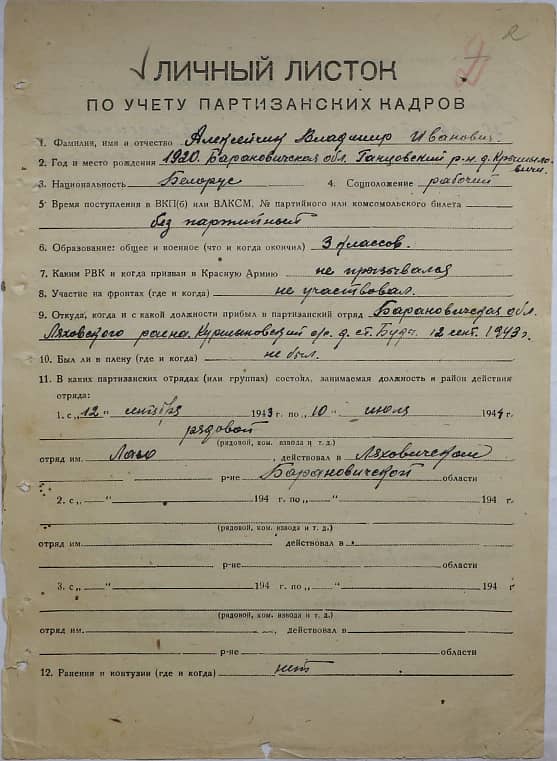 2
ЛИЧНЫЙ ЛИСТОК
ПО УЧЕТУ ПАРТИЗАНСКИХ КАДРОВ
1. Фамилия, имя и отчество Алексейчик Владимир Иванович.
2. Год и место рождения 1920. Барановичская обл. Ганцовский р-н. д.
3. Национальность Белорус 4. Соцположение рабочий
5. Время поступления в ВКП(б) или ВЛКСМ, № партийного или комсомольского билета
без партийный
6. Образование: общее и военное (что и когда окончил) 3 классов.
7. Каким РВК и когда призван в Красную Армию не призывался
8. Участие на фронтах (где и когда) не участвовал.
9. Откуда, когда и с какой должности прибыл в партизанский отряд Барановичская обл.
Ляховского раена. д. ст. Буда. 12 сент. 1943 г.
10. Был ли в плену (где и когда) не был.
11. В каких партизанских отрядах (или группах) состоял, занимаемая должность и район действия
отряда:
1. с „12" сентября 1943 г. по „10" июля 1944 г.
рядовой
(рядовой, ком. взвода и т. д.)
отряд им. Лазо, действовал в Ляховичском
р-не Барановичской области
2. с „ " 194 г. по „ " 194 г.
(рядовой, ком. взвода и т. д.)
отряд им. действовал в
р-не области
3. с „ " 194 г. по „ " 194 г.
(рядовой, ком. взвода и т. д.)
отряд им. , действовал в
р-не области
12. Ранения и контузии (где и когда) нет